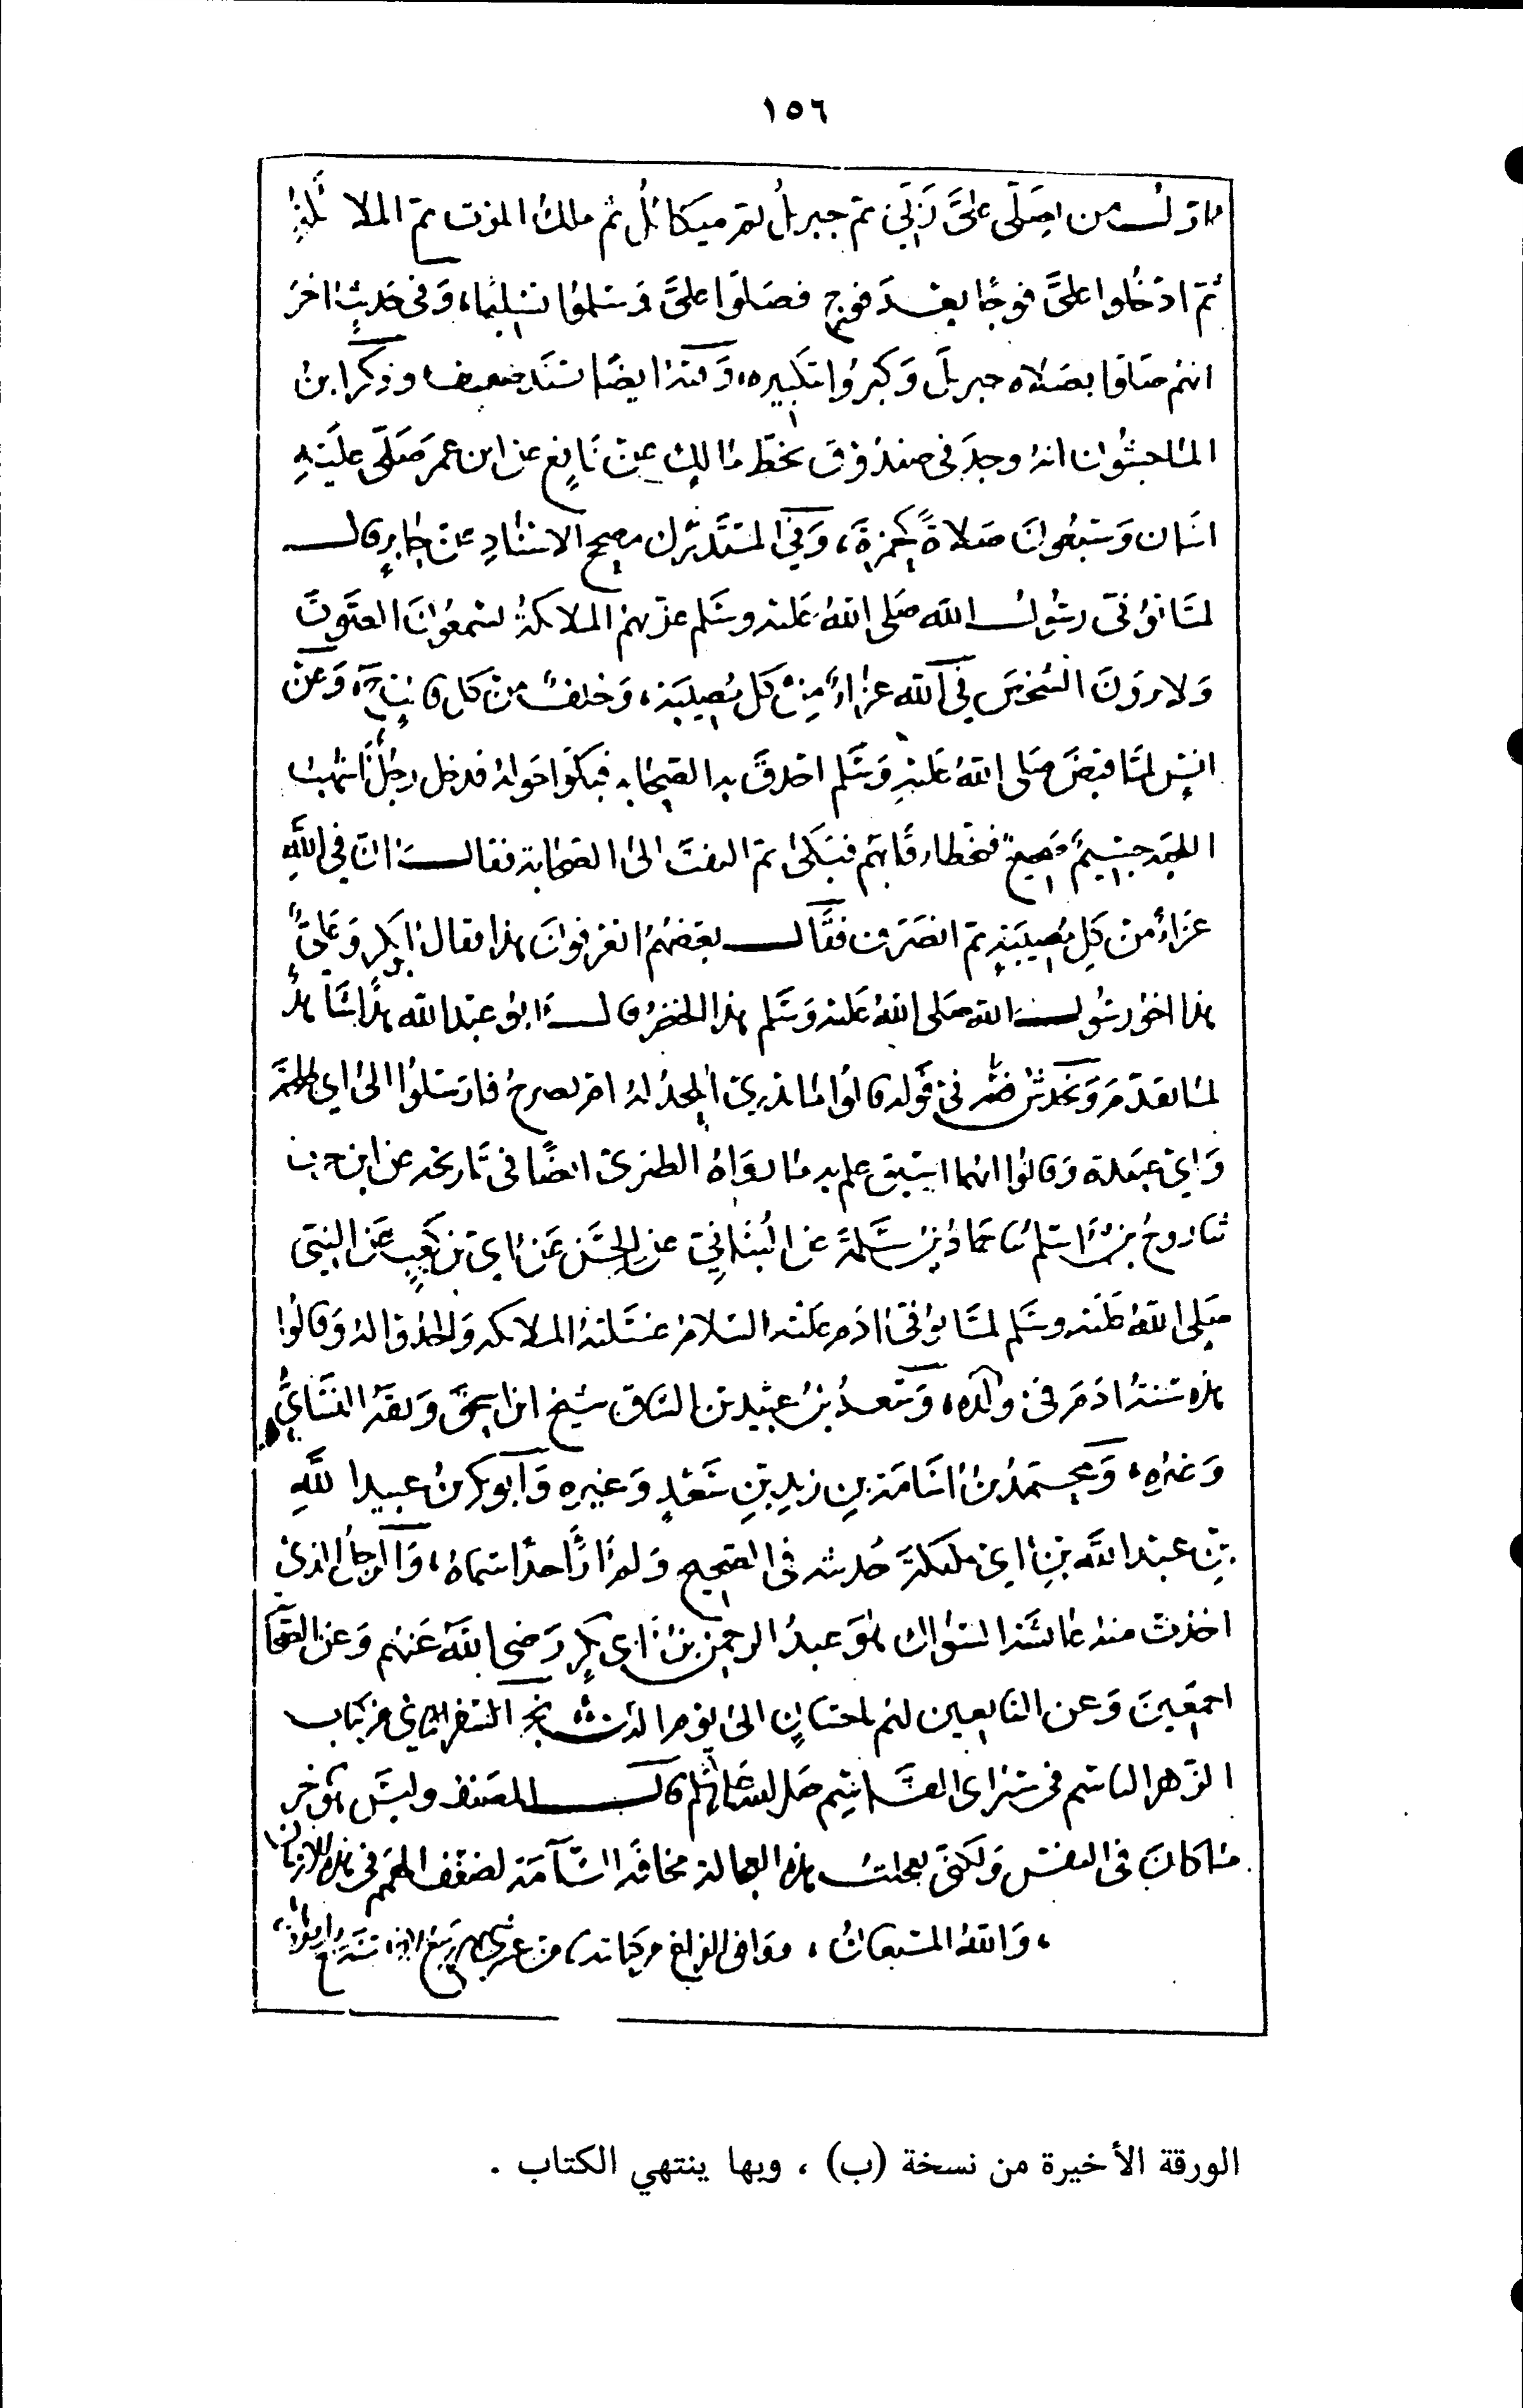 ١٥٦
من يصلى على ربى ثم جبريل ثم ميكائل ثم ملك الموت ثم الملا
ثم ادخلوا على فوجًا بعد فوج فصلوا على وسلموا تسليما، وفى حديث اخر
انهم صلوا بصلاه جبريل وكبروا بتكبيره، وسنده ايضًا سند ضعيف وذكر ابن
الماجشون انه وجد فى صندوق بخط مالك عن نافع عن ابن عمر صلى عليه
اثنان وسبعون صلاةً كحمزة، وفى المستدرك صحيح الاسناد عن جابر قال
لما توفى رسول الله صلى الله عليه وسلم عزتهم الملائكة يسمعون الصوت
ولا يرون الشخص فى الله عزاءً من كل مصيبة، وخلفًا من كل فائت، وعن
انس لما قبض صلى الله عليه وسلم احدق به الصحابه فبكوا حوله فدخل رجل اشهب
اللحية جسيم صبيح فتخطا رقابهم فبكى ثم التفت الى الصحابة فقال ان فى الله
عزاءً من كل مصيبة ثم انصرف فقال بعضهم اتعرفون هذا فقال ابو بكر وعلىٌّ
هذا اخو رسول الله صلى الله عليه وسلم هذا الخضر قال ابو عبد الله هذا شاهد
لما تقدم ويخدش فى قوله قالوا ما ندرى ايلحد له ام يضرح فارسلوا الى ابى طلحة
وابى عبيدة وقالوا ايهما سبق عمل به ما رواه الطبرى ايضًا فى تاريخه عن ابن
ثنا روح بن اسلم ثنا حماد بن سلمة عن البنانى عن الحسن عن ابى بن كعب عن النبى
صلى الله عليه وسلم لما توفى ادم عليه السلام غسلته الملائكة ولحدوا له وقالوا
هذه سنة ادم فى ولده، وسعد بن عبيد بن السباق شيخ ابن اسحق وثقه النسائى
وغيره، ومحمد بن اسامة بن زيد بن سعد وغيره وابو بكر بن عبيد الله
بن عبد الله بن ابى مليكة حديثه فى الصحيح ولم ار احدًا سماه، والرجل الذى
اخذت منه عائشة السواك هو عبد الرحمن بن ابى بكر رضى الله عنهم وعن الصحابة
اجمعين وعن التابعين لهم باحسان الى يوم الدين نجز السفر الثانى من كتاب
الزهر الباسم فى سير ابى القاسم صلى الله عليه وسلم قال المصنف وليس هو خر
ما كان فى النفس ولكنى تعجلت هذه العجالة مخافة السآمة لضعف الهمم فى هذه الازمان
، والله المستعان، ووافى الفراغ من كتابته، من ربيع سنة
الورقة الأخيرة من نسخة (ب) ، وبها ينتهي الكتاب .